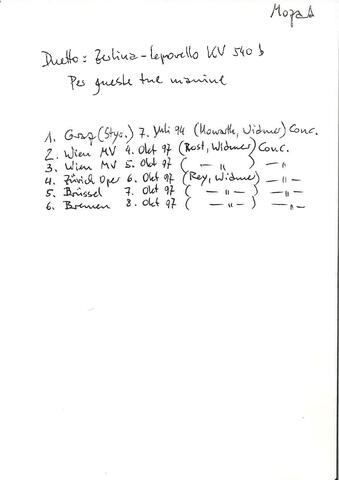 Mozart
Duetto: Zerlina - Leporello KV 540 b
Per queste tue manine
1. Graz (Styr.) 7. Juli 94 (Howarth, Widmer) Conc.
2. Wien MV 4. Okt 97 (Rost, Widmer) Conc.
3. Wien MV 5. Okt 97 ( — " — ) — " —
4. Zürich Oper 6. Okt 97 (Rey, Widmer) — " —
5. Brüssel 7. Okt 97 ( — " — ) — " —
6. Bremen 8. Okt 97 ( — " — ) — " —